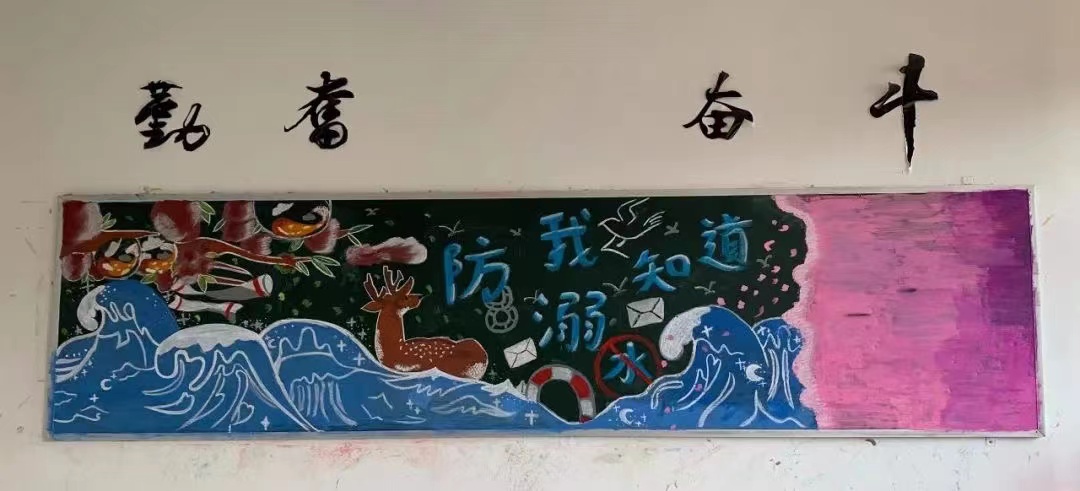 勤奮 奋斗
防溺水我知道